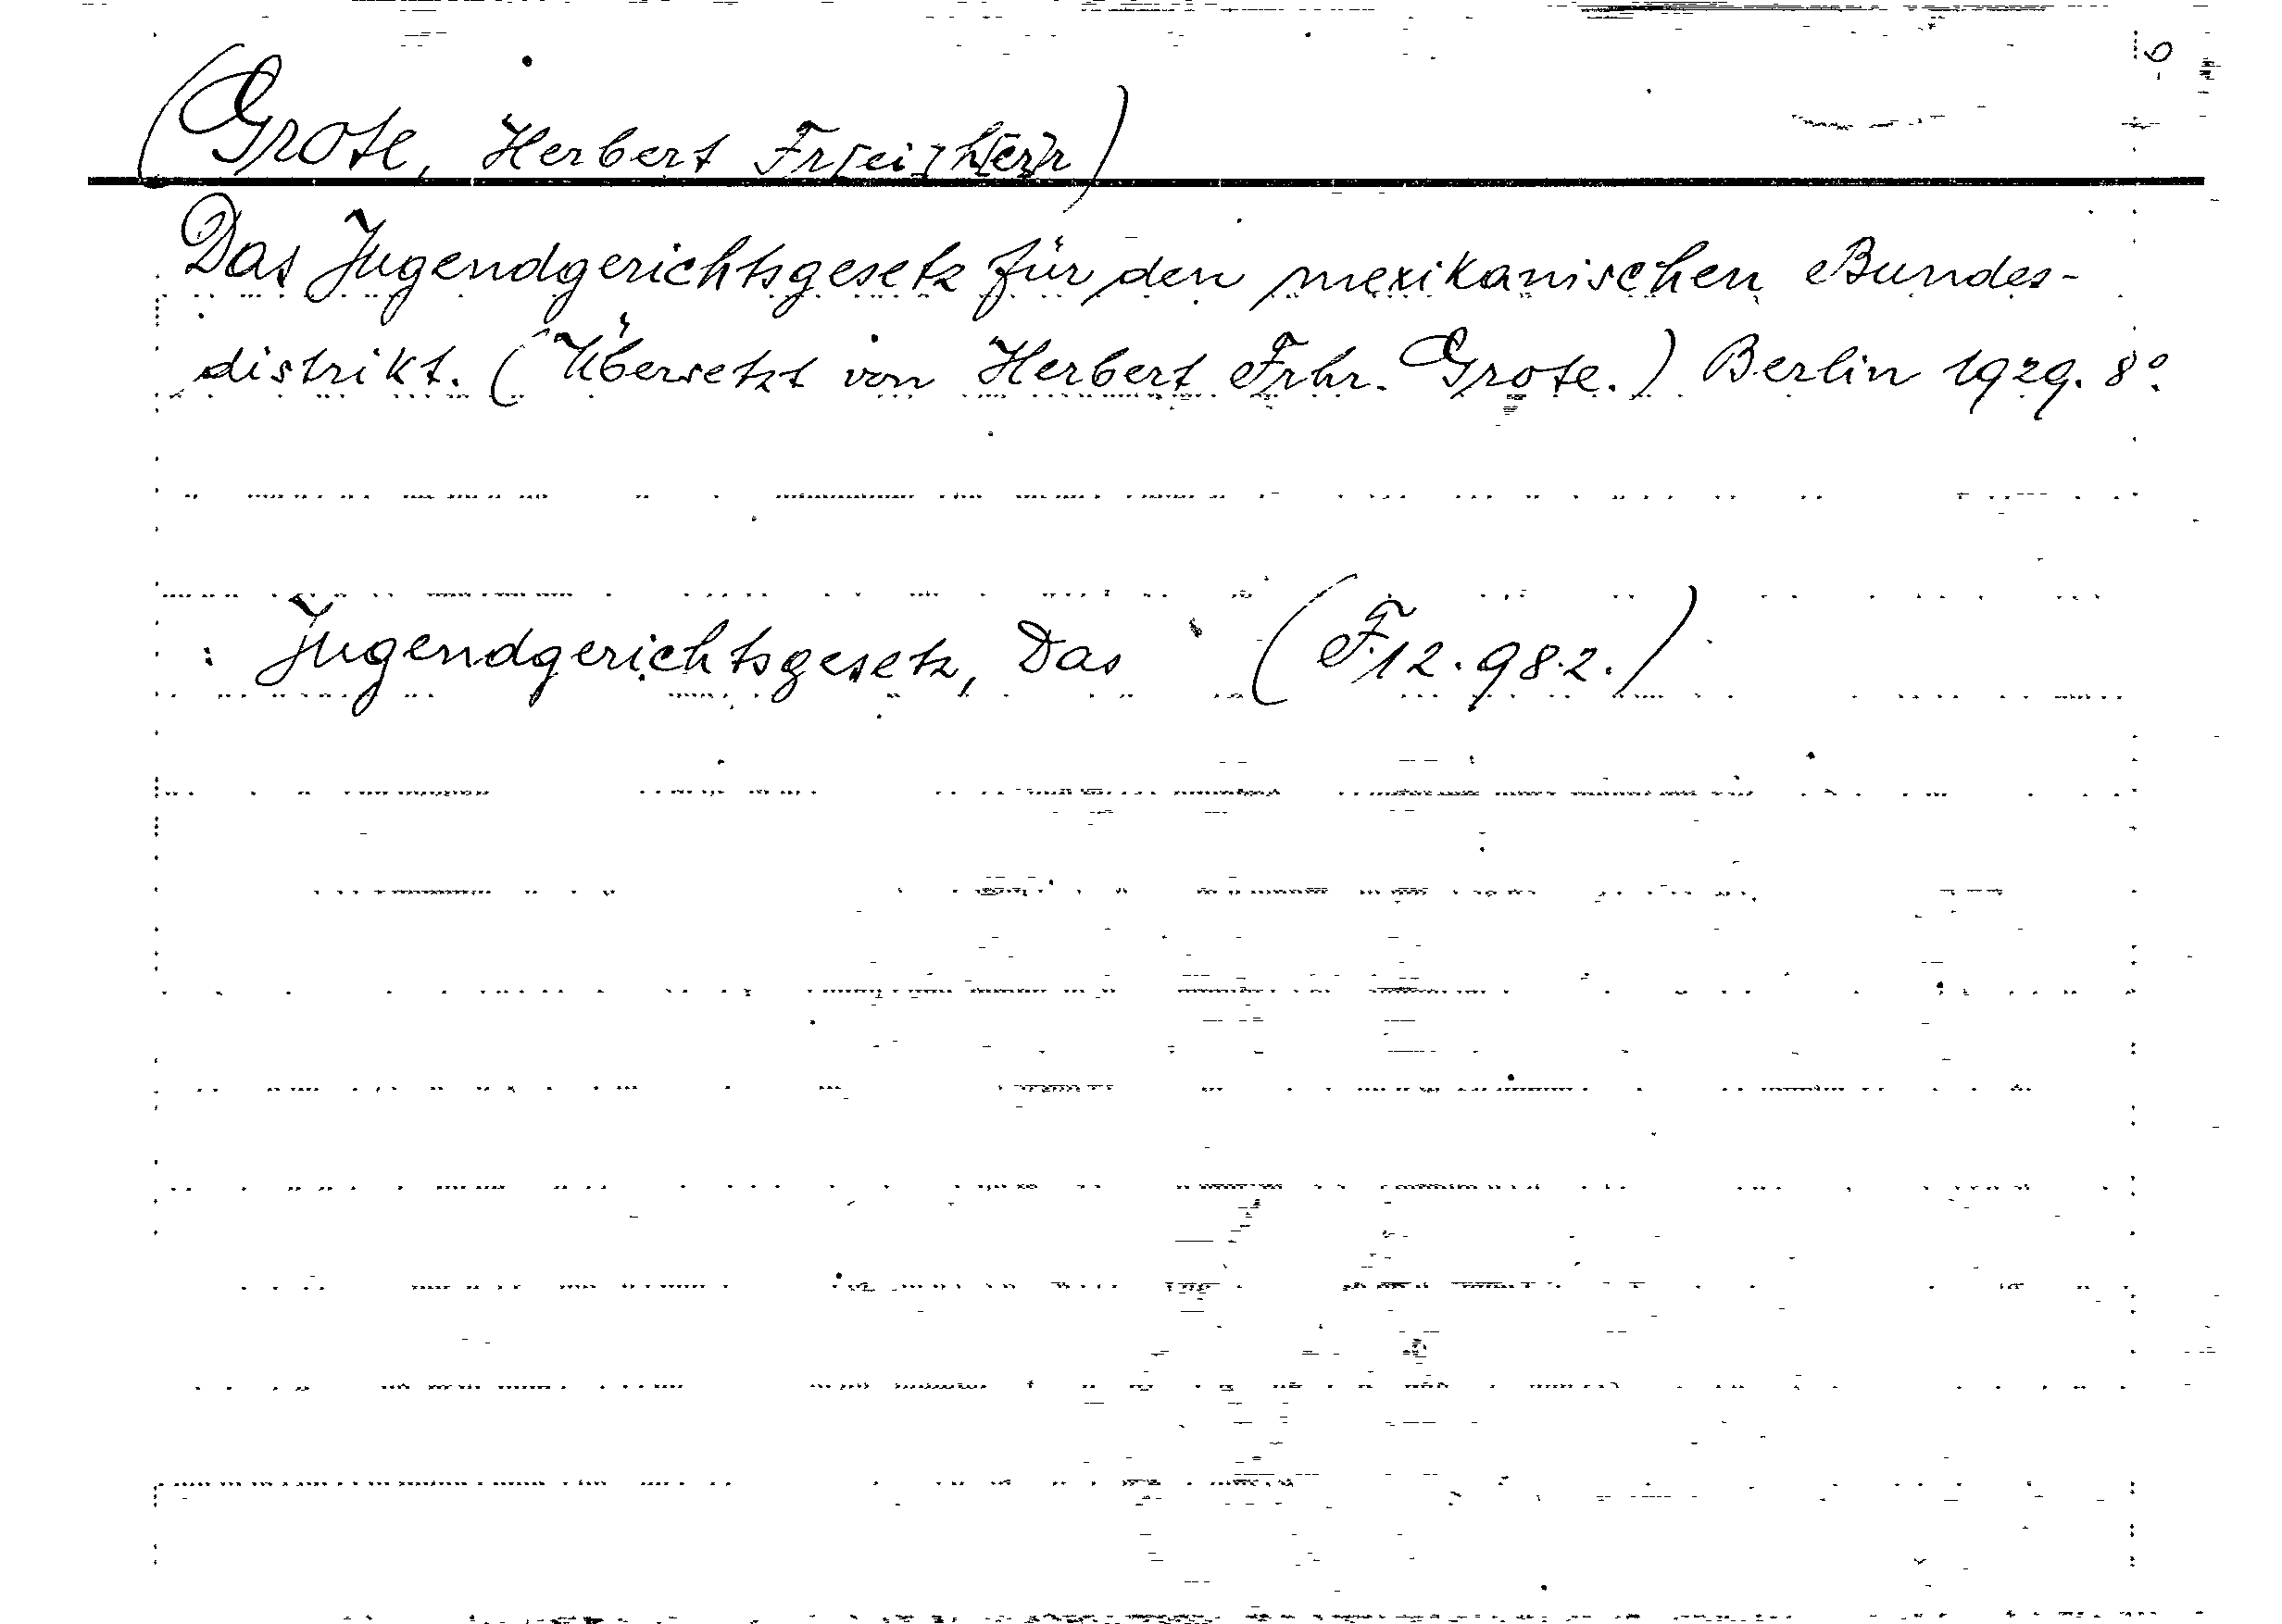 (Grote, Herbert Fr[ei]h[er]r)
Das Jugendgerichtsgesetz für den mexikanischen Bundes-
distrikt. (Übersetzt von Herbert Frhr. Grote.) Berlin 1929. 8°.
: Jugendgerichtsgesetz, Das (F.12.982.)